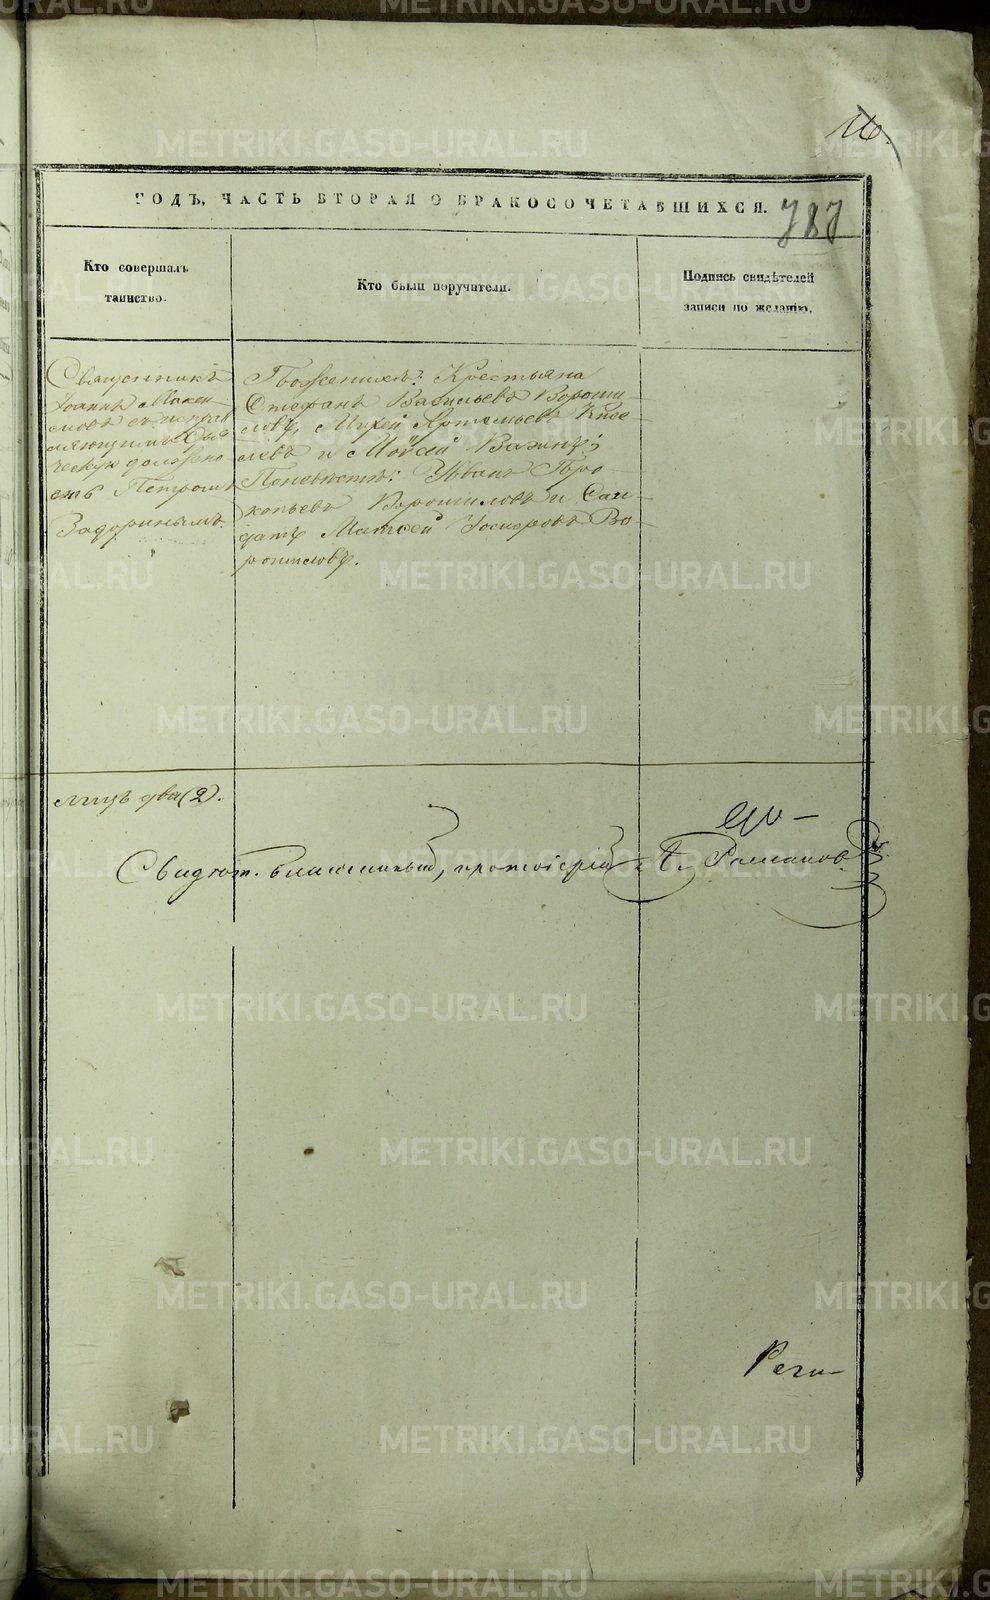 16.
ГОДЪ, ЧАСТЬ ВТОРАЯ О БРАКОСОЧЕТАВШИХСЯ.
787
Кто совершалъ
таинство.
Кто были поручители.
Подпись свидѣтелей
записи по желанію.
Священникъ
Іоаннъ Макси-
мовъ съ исправ
ляющимъ дья
ческую должно
сть Петромъ
Задоринымъ.
По женихѣ: Крестьяна
Стефанъ Васильевъ Вороши-
ловъ, Михей Артемьевъ Кисе
левъ и Мойсей Важинъ;
По невѣстѣ: Иванъ Про-
копьевъ Ворошиловъ и Сол-
датъ Матвей Во-
рошиловъ.
лицъ два (2).
Свидѣт. благочинный, протоіерей Романовъ
METRIKI.GASO-URAL.RU